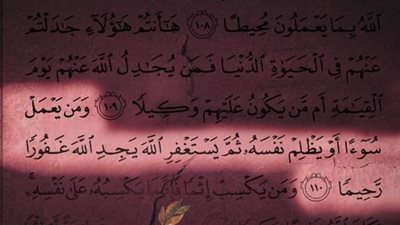 ٱللَّهُ بِمَا يَعْمَلُونَ مُحِيطًا ١٠٨ هَٰٓأَنتُمْ هَٰٓؤُلَآءِ جَٰدَلْتُمْ
عَنْهُمْ فِى ٱلْحَيَوٰةِ ٱلدُّنْيَا فَمَن يُجَٰدِلُ ٱللَّهَ عَنْهُمْ يَوْمَ
ٱلْقِيَٰمَةِ أَم مَّن يَكُونُ عَلَيْهِمْ وَكِيلًا ١٠٩ وَمَن يَعْمَلْ
سُوٓءًا أَوْ يَظْلِمْ نَفْسَهُۥ ثُمَّ يَسْتَغْفِرِ ٱللَّهَ يَجِدِ ٱللَّهَ غَفُورًا
رَّحِيمًا ١١٠ وَمَن يَكْسِبْ إِثْمًا فَإِنَّمَا يَكْسِبُهُۥ عَلَىٰ نَفْسِهِۦ ۚ